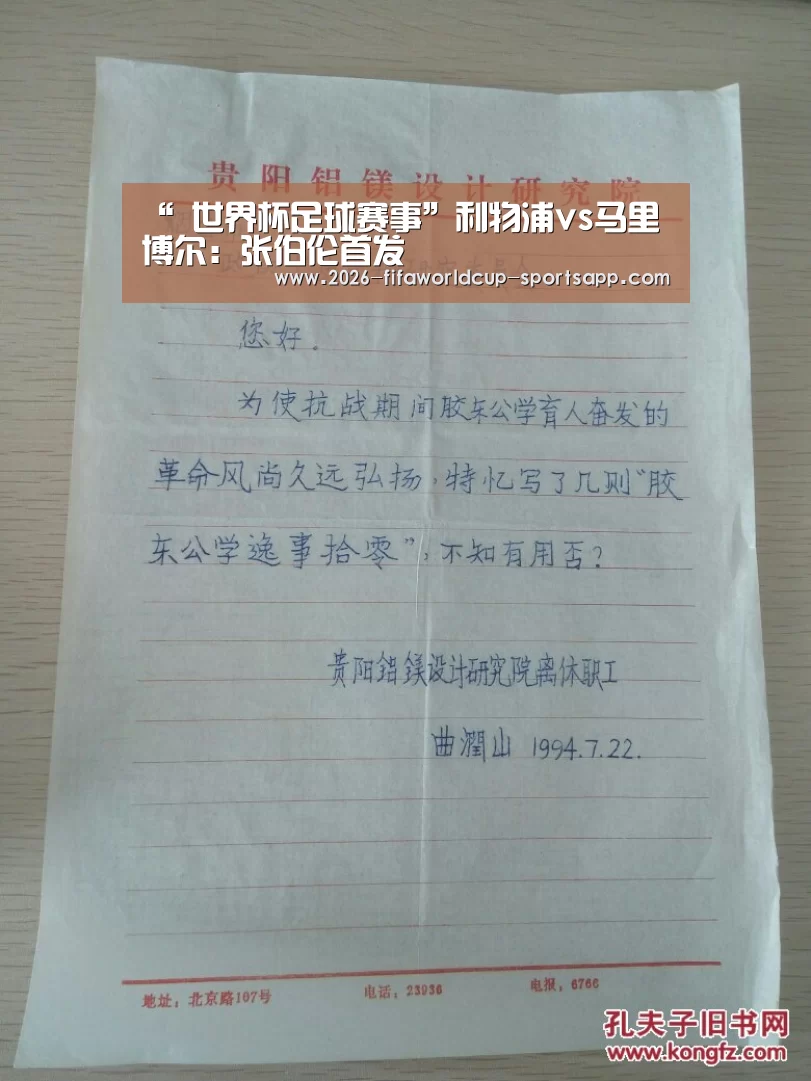 贵阳铝镁设计研究院
“ 世界杯足球赛事”利物浦vs马里
博尔：张伯伦首发
www.2026-fifaworldcup-sportsapp.com
您好．
为使抗战期间胶东公学育人奋发的
革命风尚久远弘扬，特忆写了几则“胶
东公学逸事拾零”，不知有用否？
贵阳铝镁设计研究院离休职工
曲潤山 1994.7.22.
地址：北京路107号 电话：23936 电报：6766
孔夫子旧书网
www.kongfz.com